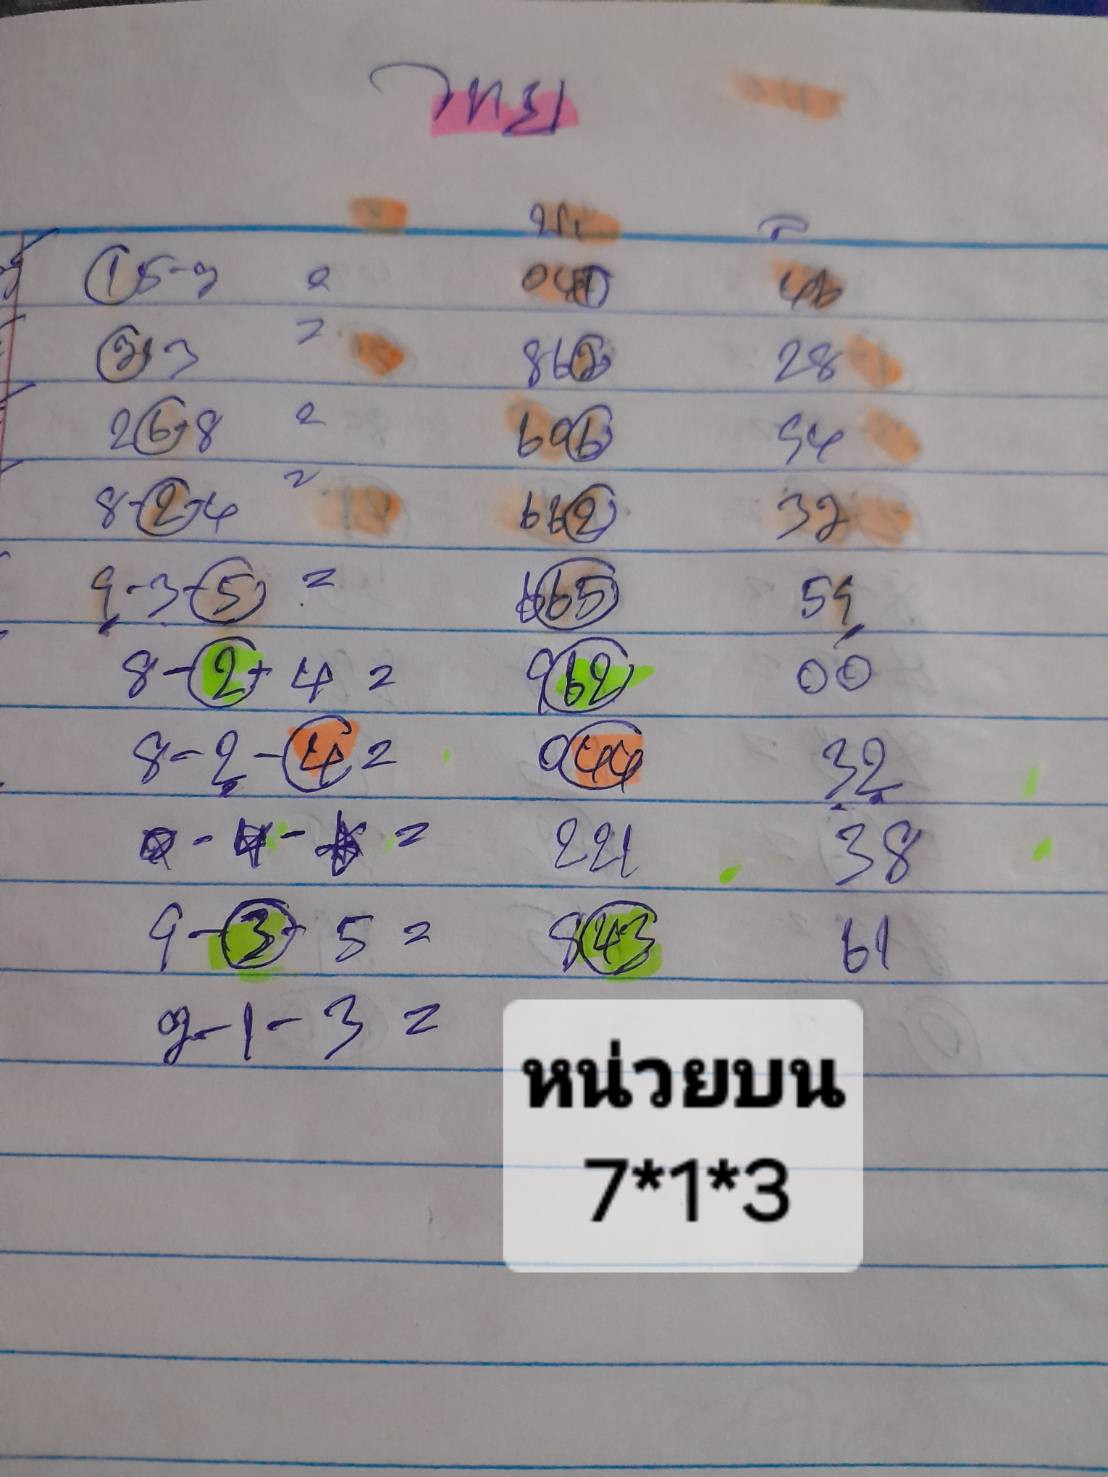 บน ล
15-7 = 041 46
3 = 862 28
26-8 = 696 54
8-2-4 = 662 32
9-3-5 = 665 59
8-2-4 = 962 00
8-2-4 = 944 32
= 221 38
9-3-5 = 843 61
7-1-3 =
หน่วยบน
7*1*3